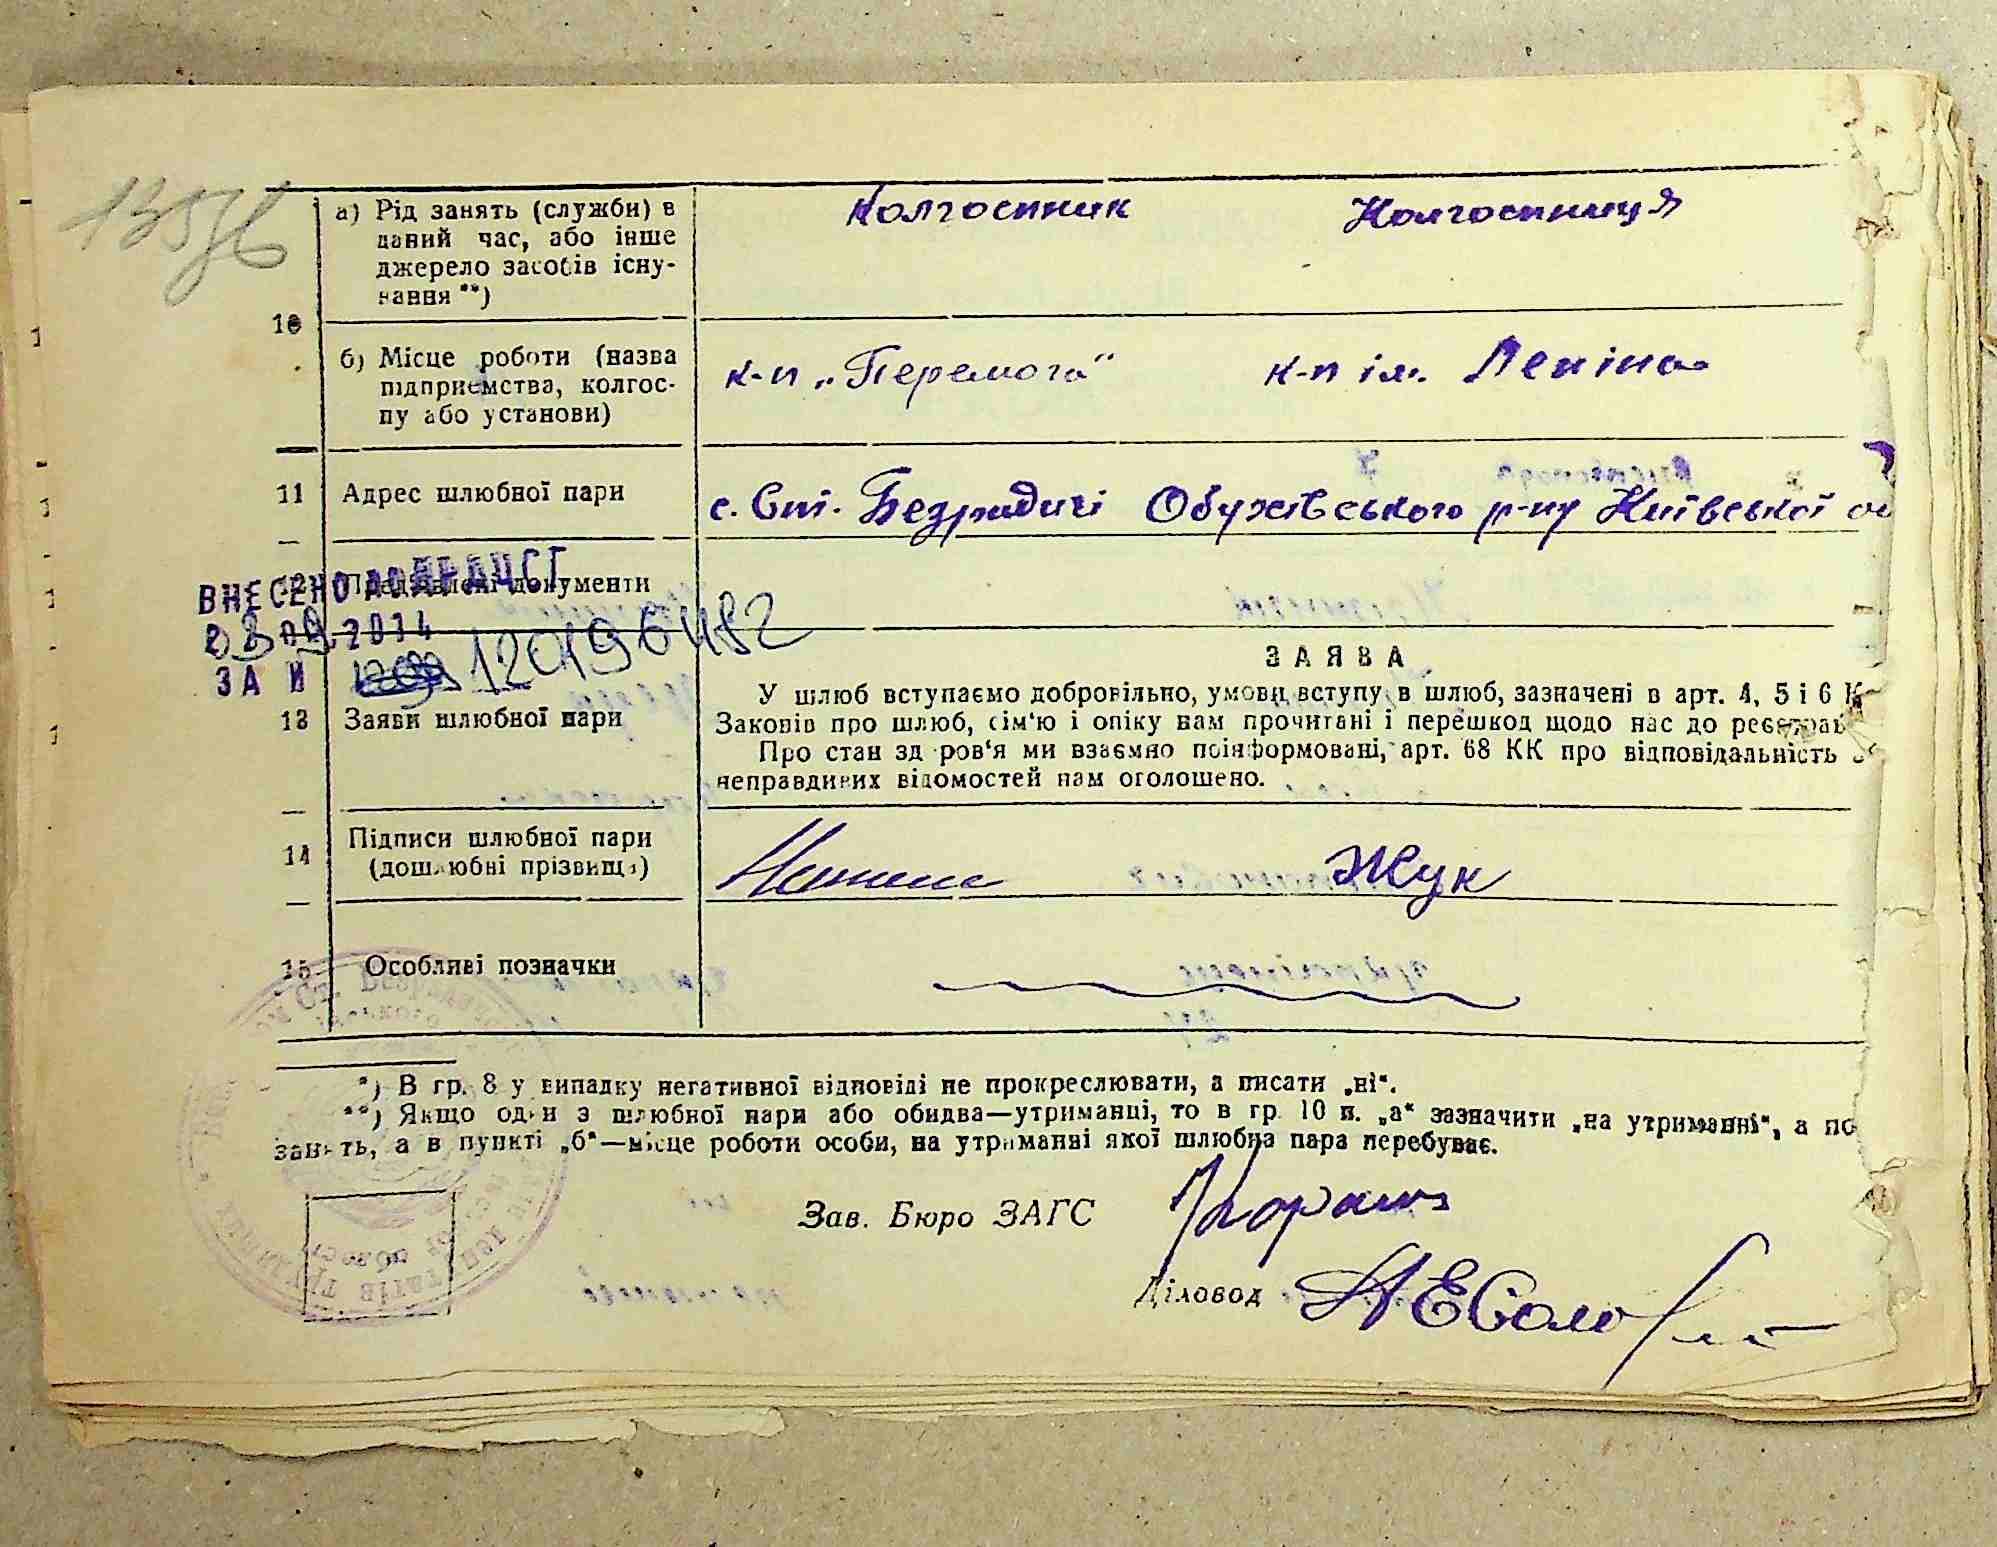 135зв
10
а) Рід занять (служби) в
даний час, або інше
джерело засобів існу-
вання **)
Колгоспник Колгоспниця
б) Місце роботи (назва
підприємства, колгос-
пу або установи)
к-п „Перемога" к-п ім. Леніна
11 Адрес шлюбної пари
с. Ст. Безрадичі Обухівського р-ну Київської об
12 Пред'явлені документи
ВНЕСЕНО ДО ДРАЦСГ
2014
ЗА №
120196482
13 Заяви шлюбної пари
ЗАЯВА
У шлюб вступаємо добровільно, умови вступу в шлюб, зазначені в арт. 4, 5 і 6 К
Законів про шлюб, сім'ю і опіку нам прочитані і перешкод щодо нас до реєстрац
Про стан здоров'я ми взаємно поінформовані, арт. 68 КК про відповідальність
неправдивих відомостей нам оголошено.
14 Підписи шлюбної пари
(дошлюбні прізвища)
Жук
15 Особливі позначки
*) В гр. 8 у випадку негативної відповіді не прокреслювати, а писати „ні".
**) Якщо один з шлюбної пари або обидва—утриманці, то в гр. 10 п. „а" зазначити „на утриманні", а по
занять, а в пункті „б"—місце роботи особи, на утриманні якої шлюбна пара перебуває.
Зав. Бюро ЗАГС
Діловод
Ст. Безрадич